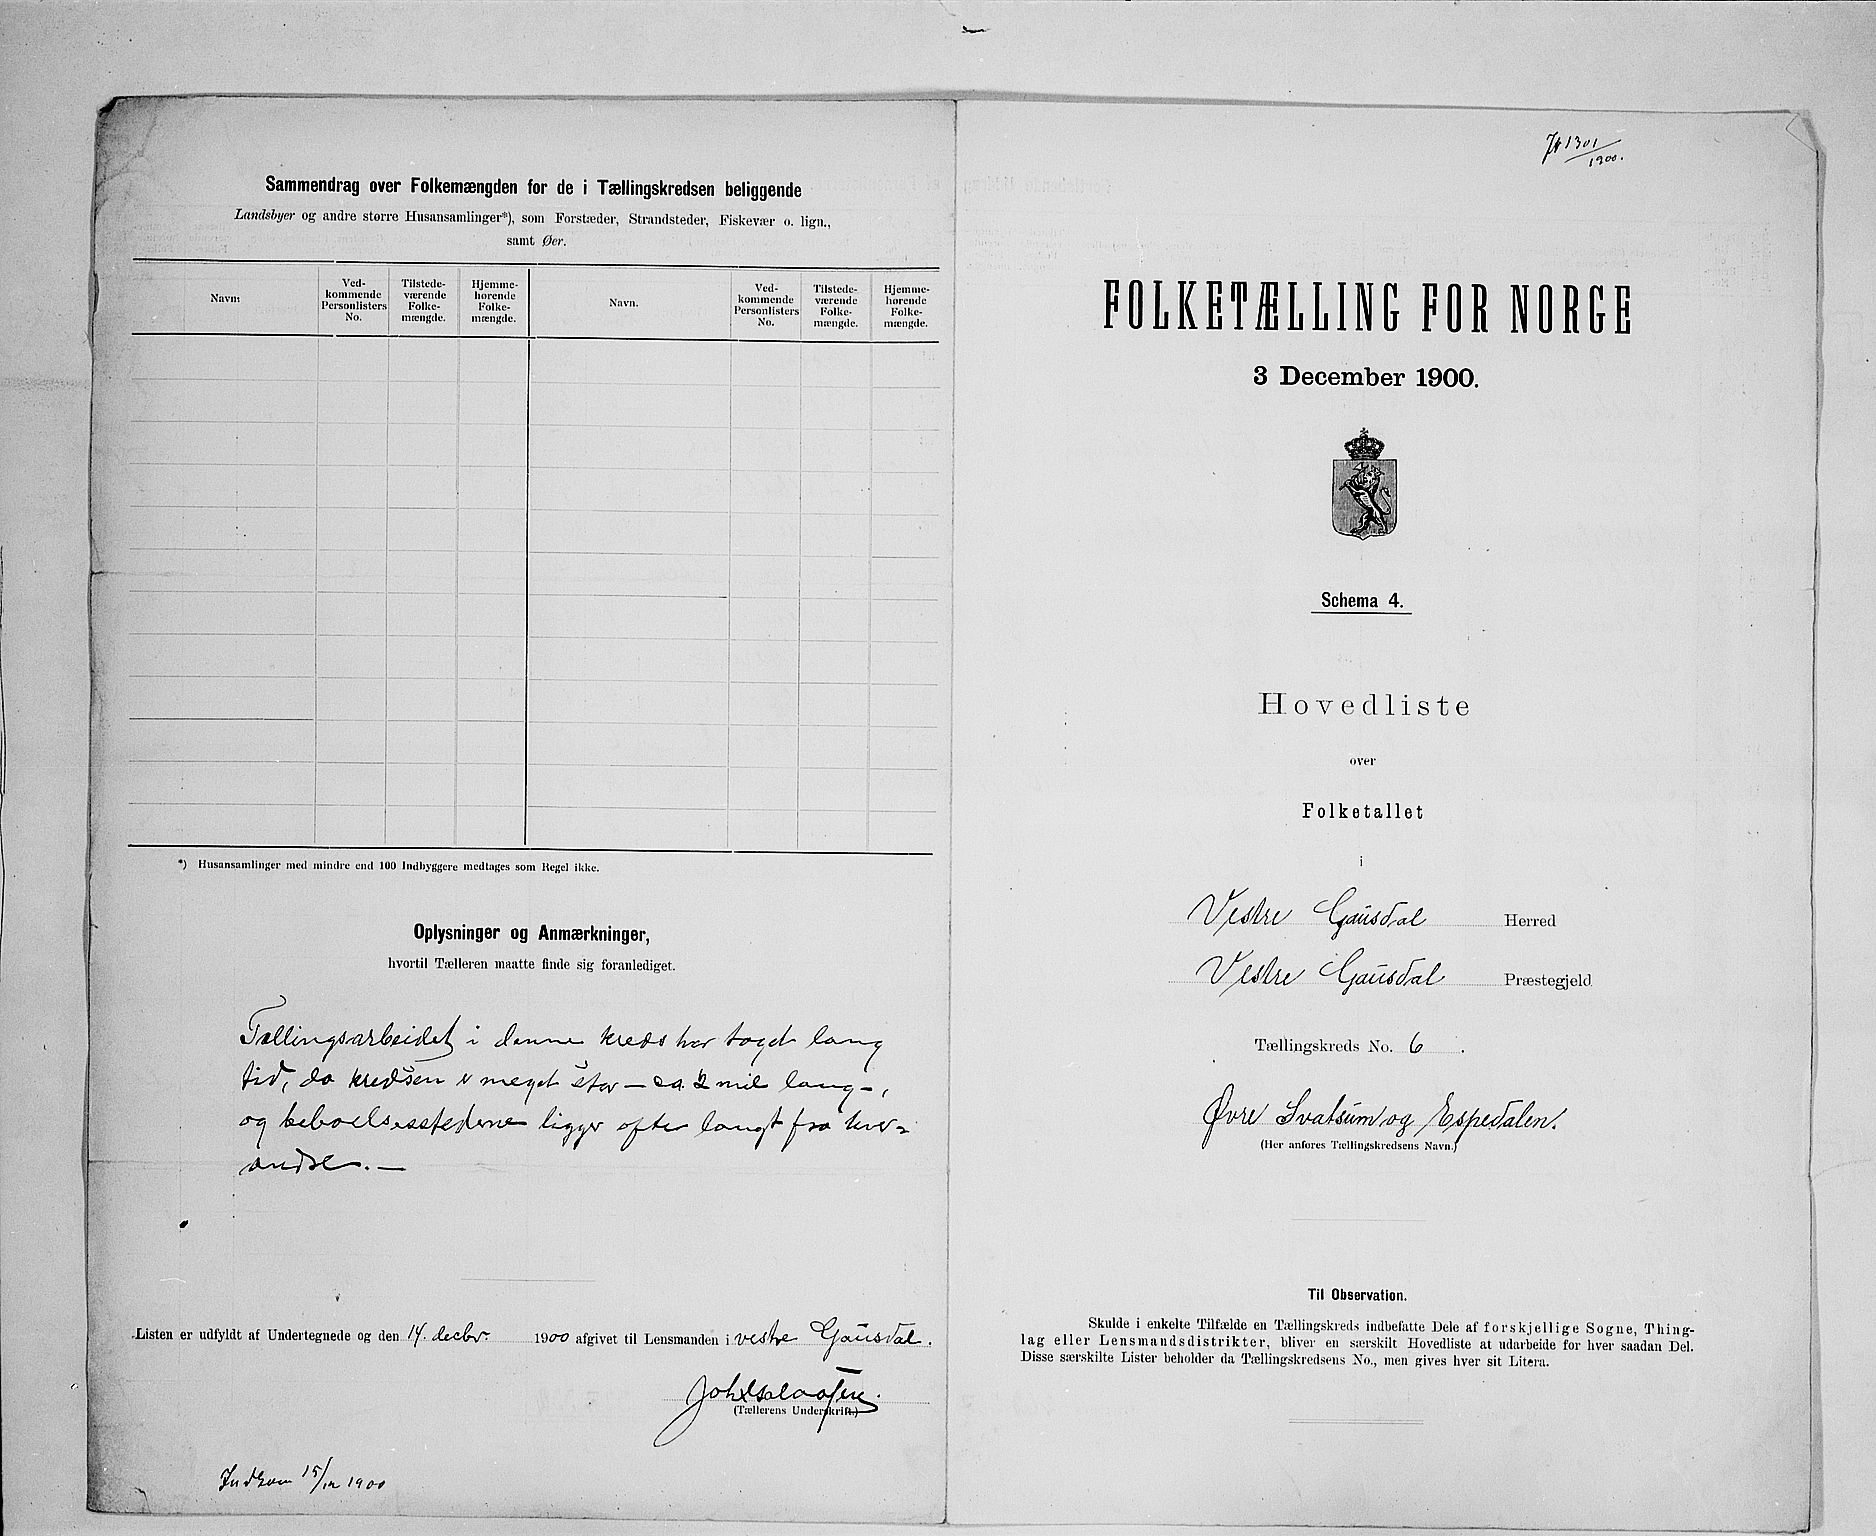 Sammendrag over Folkemængden for de i Tællingskredsen beliggende
Landsbyer og andre større Husansamlinger*), som Forstæder, Strandsteder, Fiskevær o. lign.,
samt Øer.
Navn
Ved-
kommende
Personlisters
No.
Tilstede-
værende
Folke-
mængde.
Hjemme-
hørende
Folke-
mængde.
Navn.
Ved-
kommende
Personlisters
No.
Tilstede-
værende
Folke-
mængde.
Hjemme-
hørende
Folke-
mængde.
*) Husansamlinger med mindre end 100 Indbyggere medtages som Regel ikke.
Oplysninger og Anmærkninger,
hvortil Tælleren maatte finde sig foranlediget.
Tællingsarbeidet i denne kreds har taget lang
tid, da kredsen er meget stor – ca. 2 mil lang –,
og beboelsesstederne ligger ofte langt fra hver-
andre. —
Listen er udfyldt af Undertegnede og den 14. decbr. 1900 afgivet til Lensmanden i vestre Gausdal.
(Tællerens Underskrift.)
Indkom 15/12 1900
1301
1900.
FOLKETÆLLING FOR NORGE
3 December 1900.
Schema 4.
Hovedliste
over
Folketallet
i
Vestre Gausdal Herred
Vestre Gausdal Præstegjeld
Tællingskreds No. 6.
Øvre Svatsum og Espedalen.
(Her anføres Tællingskredsens Navn.)
Til Observation.
Skulde i enkelte Tilfælde en Tællingskreds indbefatte Dele af forskjellige Sogne, Thing-
lag eller Lensmandsdistrikter, bliver en særskilt Hovedliste at udarbeide for hver saadan Del.
Disse særskilte Lister beholder da Tællingskredsens No., men gives hver sit Litera.